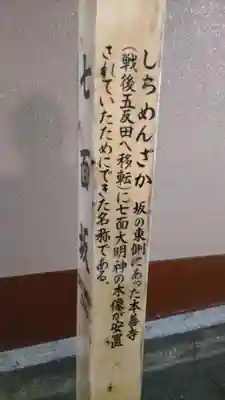 しちめんざか
坂の東側にあった本善寺
(戦後五反田へ移転)に七面大明神の木像が安置
されていたためにできた名称である。
七面坂